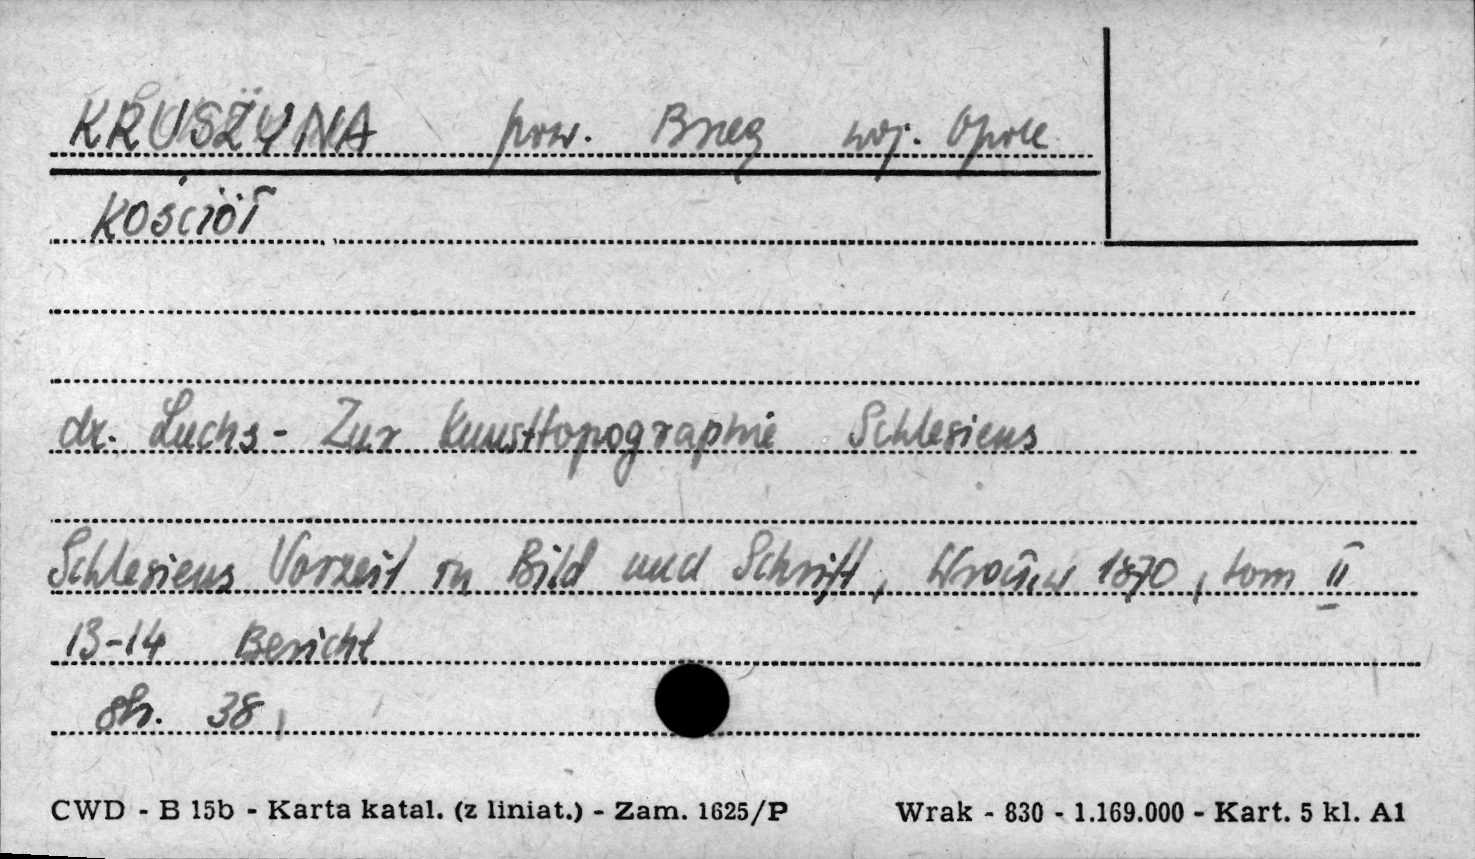 KRUSZYNA pow. Brzeg woj. Opole
Kościół
dr. Luchs - Zur Kunsttopographie Schlesiens
Schlesiens Vorzeit in Bild und Schrift, Wrocław 1870, tom II
13-14 Bericht
str. 38,
CWD - B 15b - Karta katal. (z liniat.) - Zam. 1625/P Wrak - 830 - 1.169.000 - Kart. 5 kl. A1